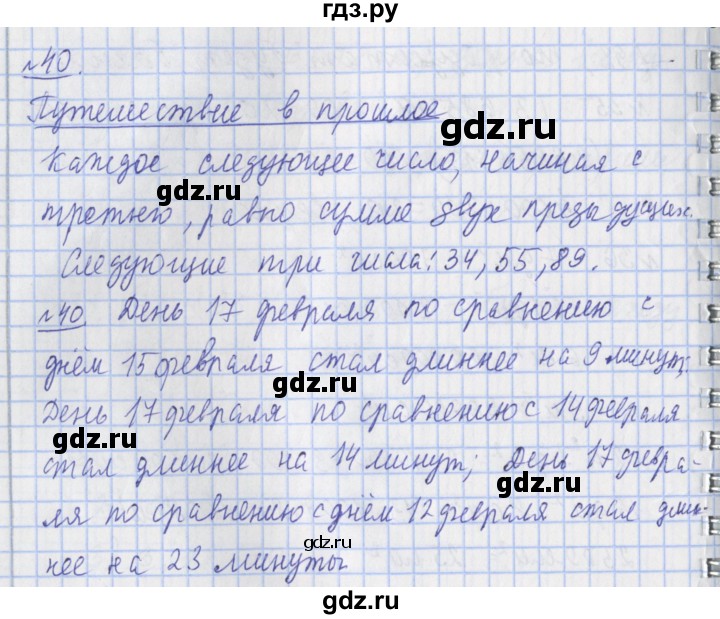 гдз.рф
№40.
Путешествие в прошлое
Каждое следующее число, начиная с
gdz.ru
gdz.ru
третьего, равно сумме двух предыдущих.
Следующие три числа: 34, 55, 89.
gdz.ru
№40 День 17 февраля по сравнению с
днём 15 февраля стал длиннее на 9 минут;
gdz.ru
День 17 февраля по сравнению с 14 февраля
gdz.ru
стал длиннее на 14 минут; День 17 февра-
gdz.ru
ля по сравнению с днём 12 февраля стал длин-
нее на 23 минуты
gdz.ru
гдз.рф